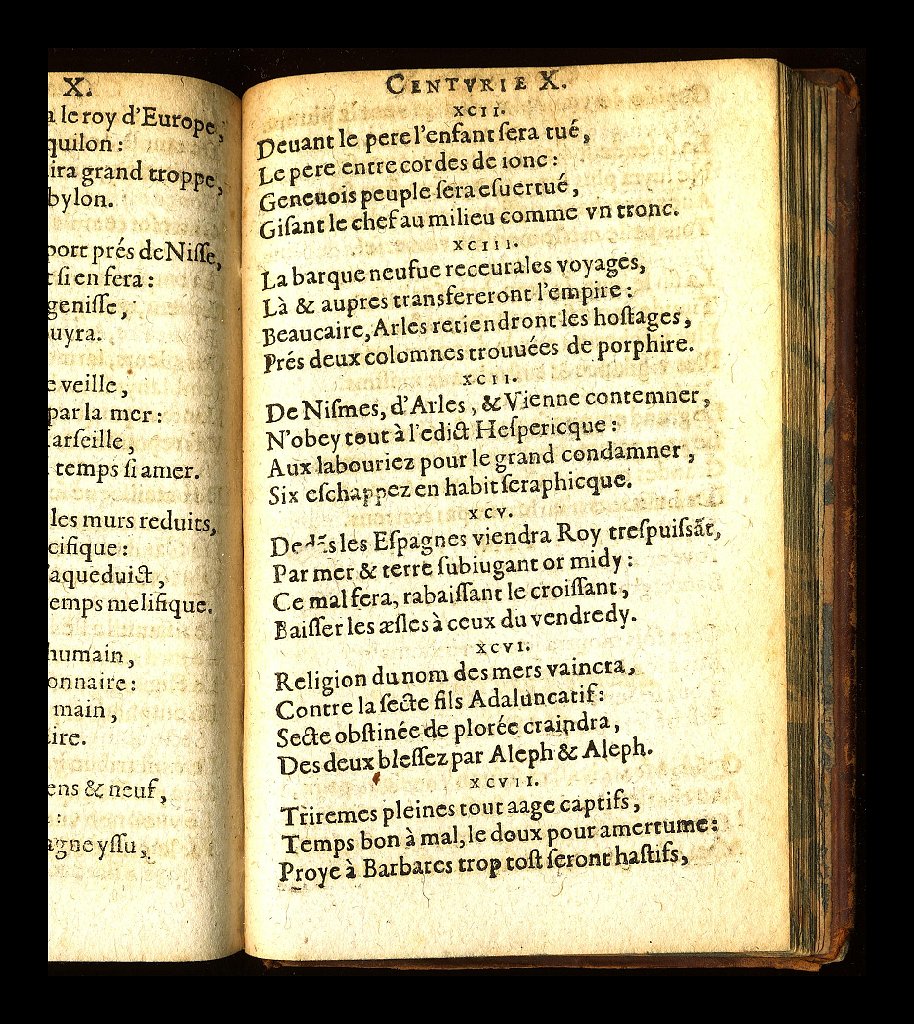 X.
a le roy d'Europe,
quilon:
ira grand troppe,
bylon.
port prés de Nisse,
t si en fera:
genisse,
uyra.
e veille,
par la mer:
arseille,
temps si amer.
les murs reduits,
cifique:
aqueduict,
emps melifique.
humain,
onnaire:
main,
ire.
ens & neuf,
:
agne yssu,
CENTVRIE X.
XCII.
Deuant le pere l'enfant sera tué,
Le pere entre cordes de ionc:
Geneuois peuple sera esuertué,
Gisant le chef au milieu comme vn tronc.
XCIII.
La barque neufue receura les voyages,
Là & aupres transfereront l'empire:
Beaucaire, Arles retiendront les hostages,
Prés deux colomnes trouuées de porphire.
XCII.
De Nismes, d'Arles, & Vienne contemner,
N'obey tout à l'edict Hespericque:
Aux labouriez pour le grand condamner,
Six eschappez en habit seraphicque.
XCV.
Dedãs les Espagnes viendra Roy trespuissãt,
Par mer & terre subiugant or midy:
Ce mal fera, rabaissant le croissant,
Baisser les æsles à ceux du vendredy.
XCVI.
Religion du nom des mers vaincra,
Contre la secte fils Adaluncatif:
Secte obstinée de plorée craindra,
Des deux blessez par Aleph & Aleph.
XCVII.
Triremes pleines tout aage captifs,
Temps bon à mal, le doux pour amertume:
Proye à Barbares trop tost seront hastifs,